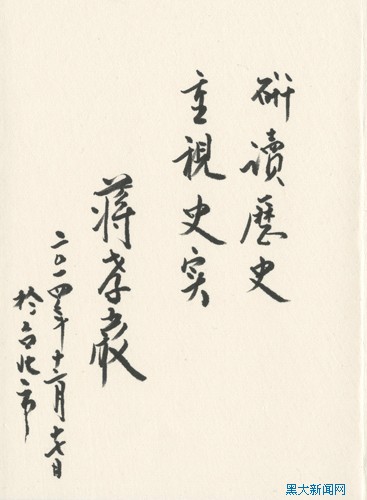 研讀歷史
重視史实
蔣孝嚴
二〇一四年十二月十七日
於台北市
黑大新闻网